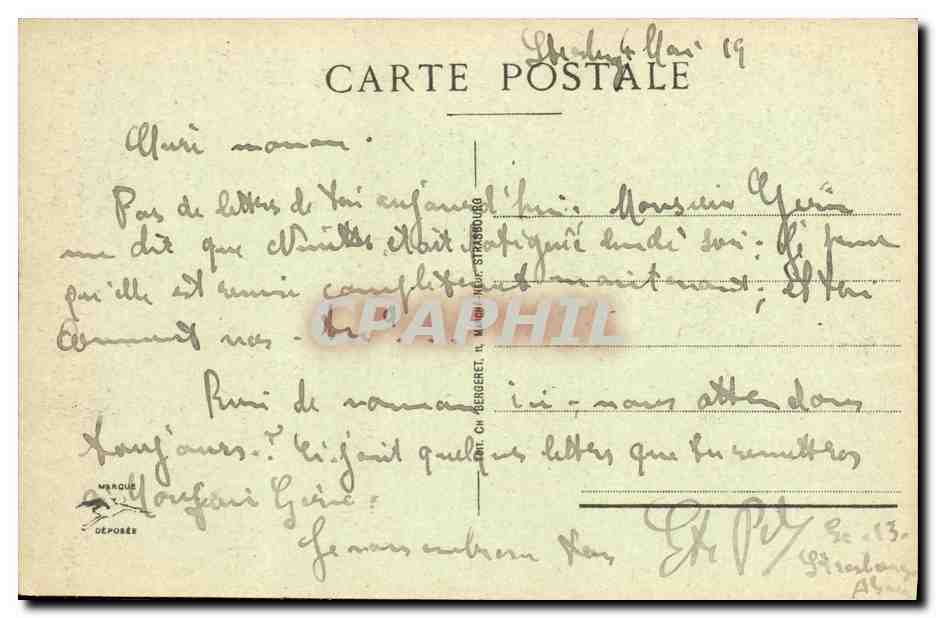 4 Mai 19
CARTE POSTALE
maman.
Pas de lettres de toi aujourd'hui. Monsieur
me dit que était fatiguée lundi soir. Je pense
qu'elle est remise complètement maintenant; Et toi
comment vas-tu? ....
Rien de nouveau ici, nous attendons
toujours.? Ci-joint quelques lettres que tu remettras
à
Je vous embrasse tous
Strasbourg
CPAPHIL
EDIT. CH BERGERET, 11, MARCHÉ-NEUF. STRASBOURG
MARQUE
DÉPOSÉE